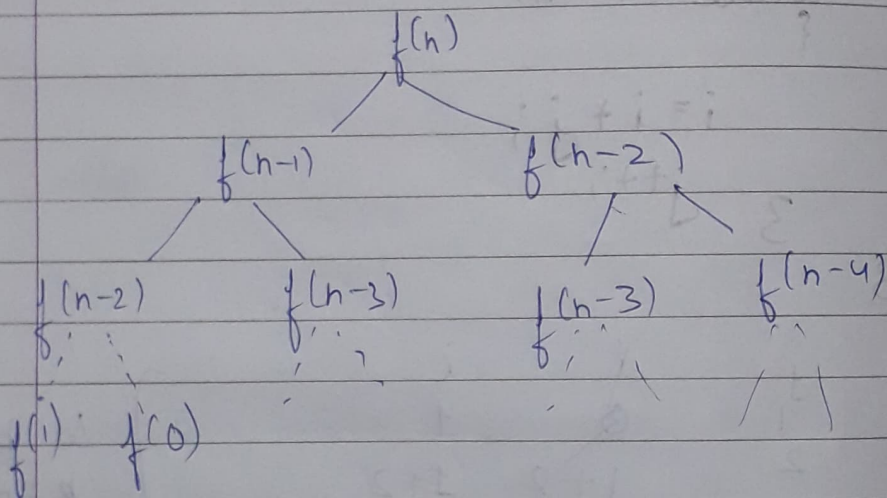 f(n)
f(n-1) f(n-2)
f(n-2) f(n-3) f(n-3) f(n-4)
f(1) f(0)